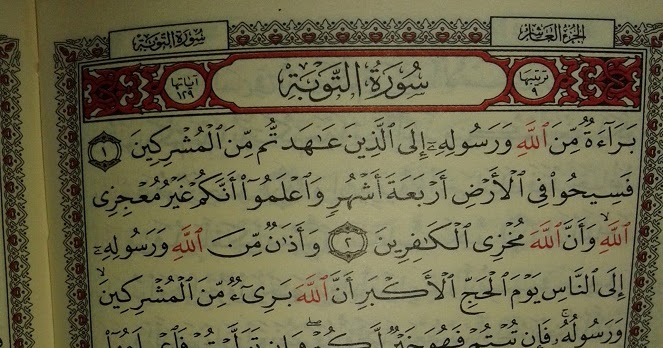 الجزء العاشر
سورة التوبة
ترتيبها ٩
سُورَةُ التَّوۡبَةِ
آياتها ١٢٩
بَرَآءَةٞ مِّنَ ٱللَّهِ وَرَسُولِهِۦٓ إِلَى ٱلَّذِينَ عَٰهَدتُّم مِّنَ ٱلۡمُشۡرِكِينَ ١
فَسِيحُواْ فِي ٱلۡأَرۡضِ أَرۡبَعَةَ أَشۡهُرٖ وَٱعۡلَمُوٓاْ أَنَّكُمۡ غَيۡرُ مُعۡجِزِي
ٱللَّهِ وَأَنَّ ٱللَّهَ مُخۡزِي ٱلۡكَٰفِرِينَ ٢ وَأَذَٰنٞ مِّنَ ٱللَّهِ وَرَسُولِهِۦٓ
إِلَى ٱلنَّاسِ يَوۡمَ ٱلۡحَجِّ ٱلۡأَكۡبَرِ أَنَّ ٱللَّهَ بَرِيٓءٞ مِّنَ ٱلۡمُشۡرِكِينَ
وَرَسُولُهُۥۚ فَإِن تُبۡتُمۡ فَهُوَ خَيۡرٞ لَّكُمۡۖ وَإِن تَوَلَّيۡتُمۡ فَٱعۡلَمُوٓاْ